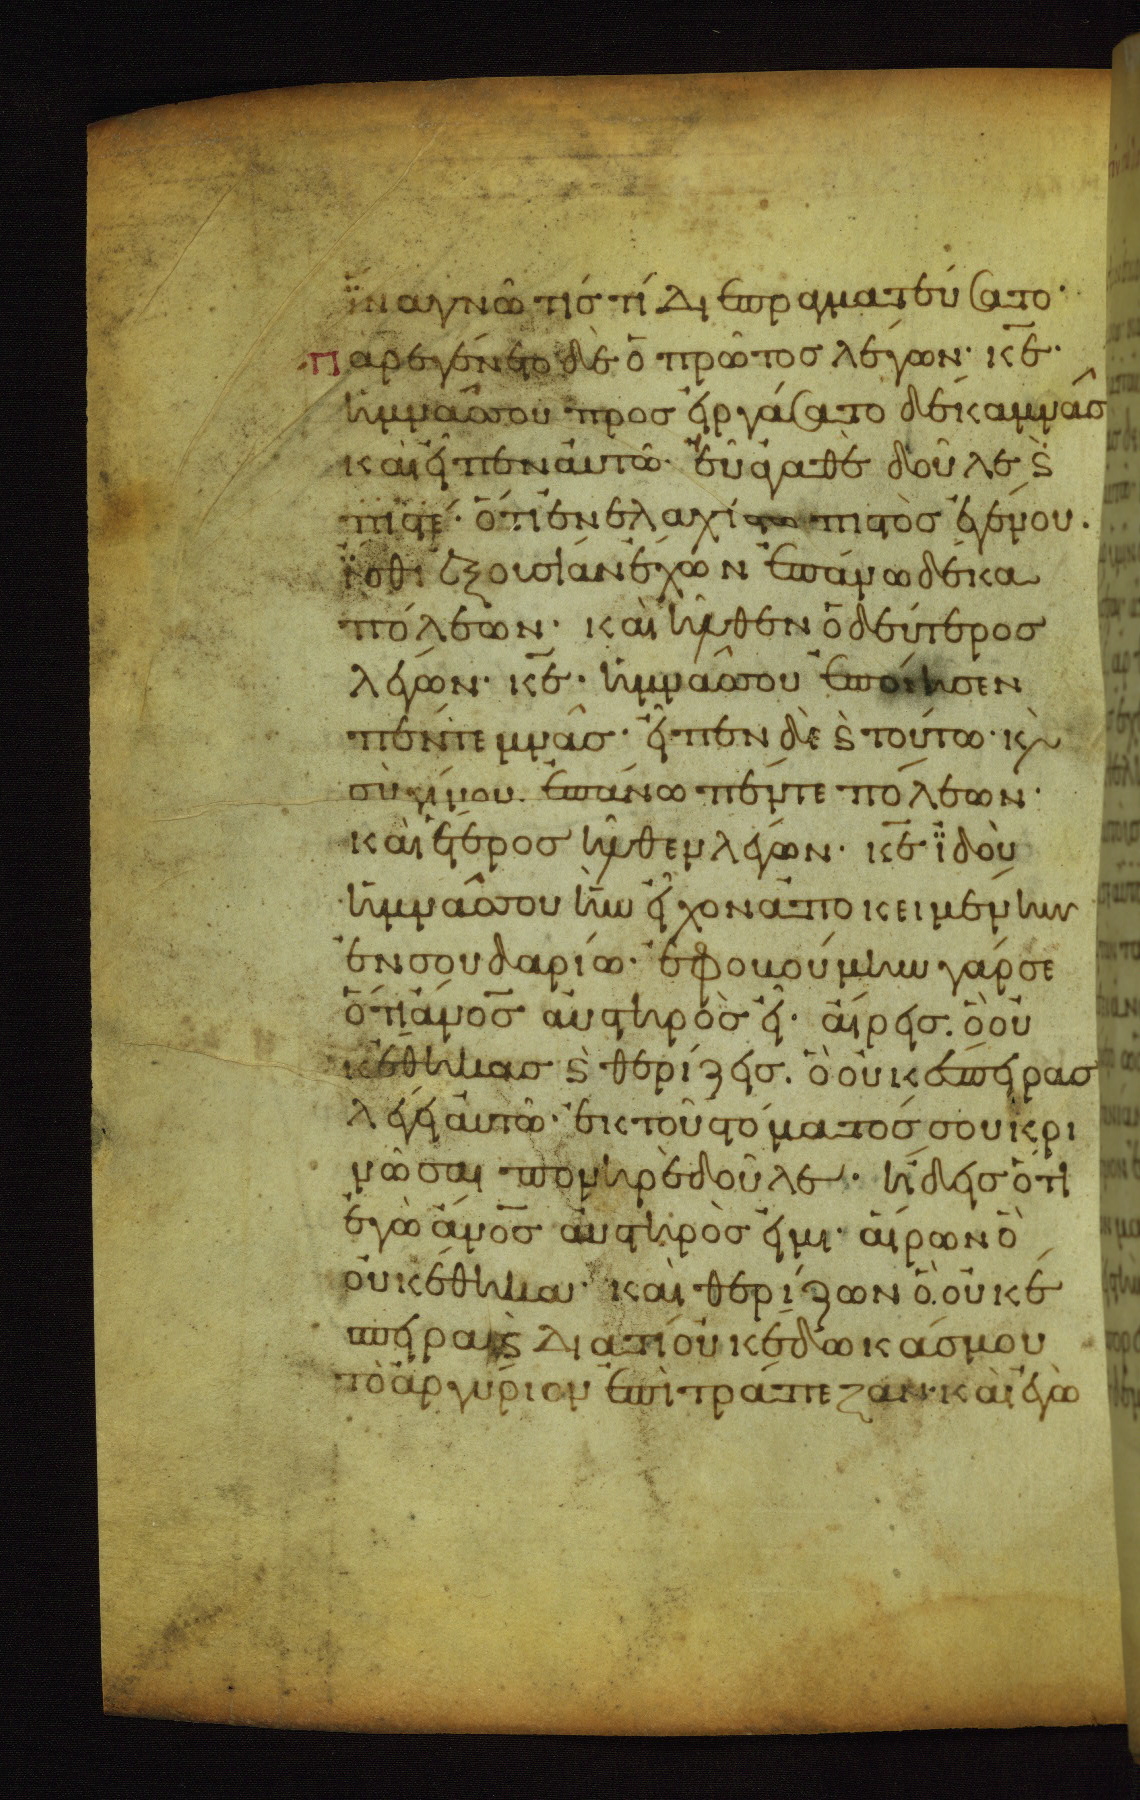 ἵνα γνῶ τίς τί διεπραγματεύσατο·
Παρεγένετο δὲ ὁ πρῶτος λέγων· κε̅·
ἡ μνᾶ σου προσειργάσατο δέκα μνᾶς
καὶ εἶπεν αὐτῶ· εὖ ἀγαθὲ δοῦλε ϗ
πιστέ· ὅτι ἐν ἐλαχίστω πιστὸς ἐγένου.
ἴσθι ἐξουσίαν ἔχων ἐπάνω δέκα
πόλεων· καὶ ἦλθεν ὁ δεύτερος
λέγων· κε̅· ἡ μνᾶ σου ἐποίησεν
πέντε μνᾶς· εἶπεν δὲ ϗ τούτω· κὶ
σὺ γίνου ἐπάνω πέντε πόλεων·
καὶ ἕτερος ἦλθεν λέγων· κε̅ ἰδοὺ
ἡ μνᾶ σου ἣν εἶχον ἀποκειμένην
ἐν σουδαρίω· ἐφοβούμην γάρ σε
ὅτι ἄνο̅ς̅ αὐστηρὸς εἶ· αἴρεις. ὃ οὐ
κ ἔθηκας ϗ θερίζεις. ὃ οὐκ ἔσπειρας
λέγει αὐτῶ· ἐκ τοῦ στόματός σου κρι
νῶ σαι πονηρὲ δοῦλε· ἤδεις ὅτι
ἐγὼ ἄνο̅ς̅ αὐστηρὸς εἰμι· αἴρων ὃ
οὐκ ἔθηκα· καὶ θερίζων ὃ. οὐκ ἔ
σπειρα ϗ διατί οὐκ ἔδωκάς μου
τὸ ἀργύριον ἐπὶ τράπεζαν· καὶ ἐγὼ